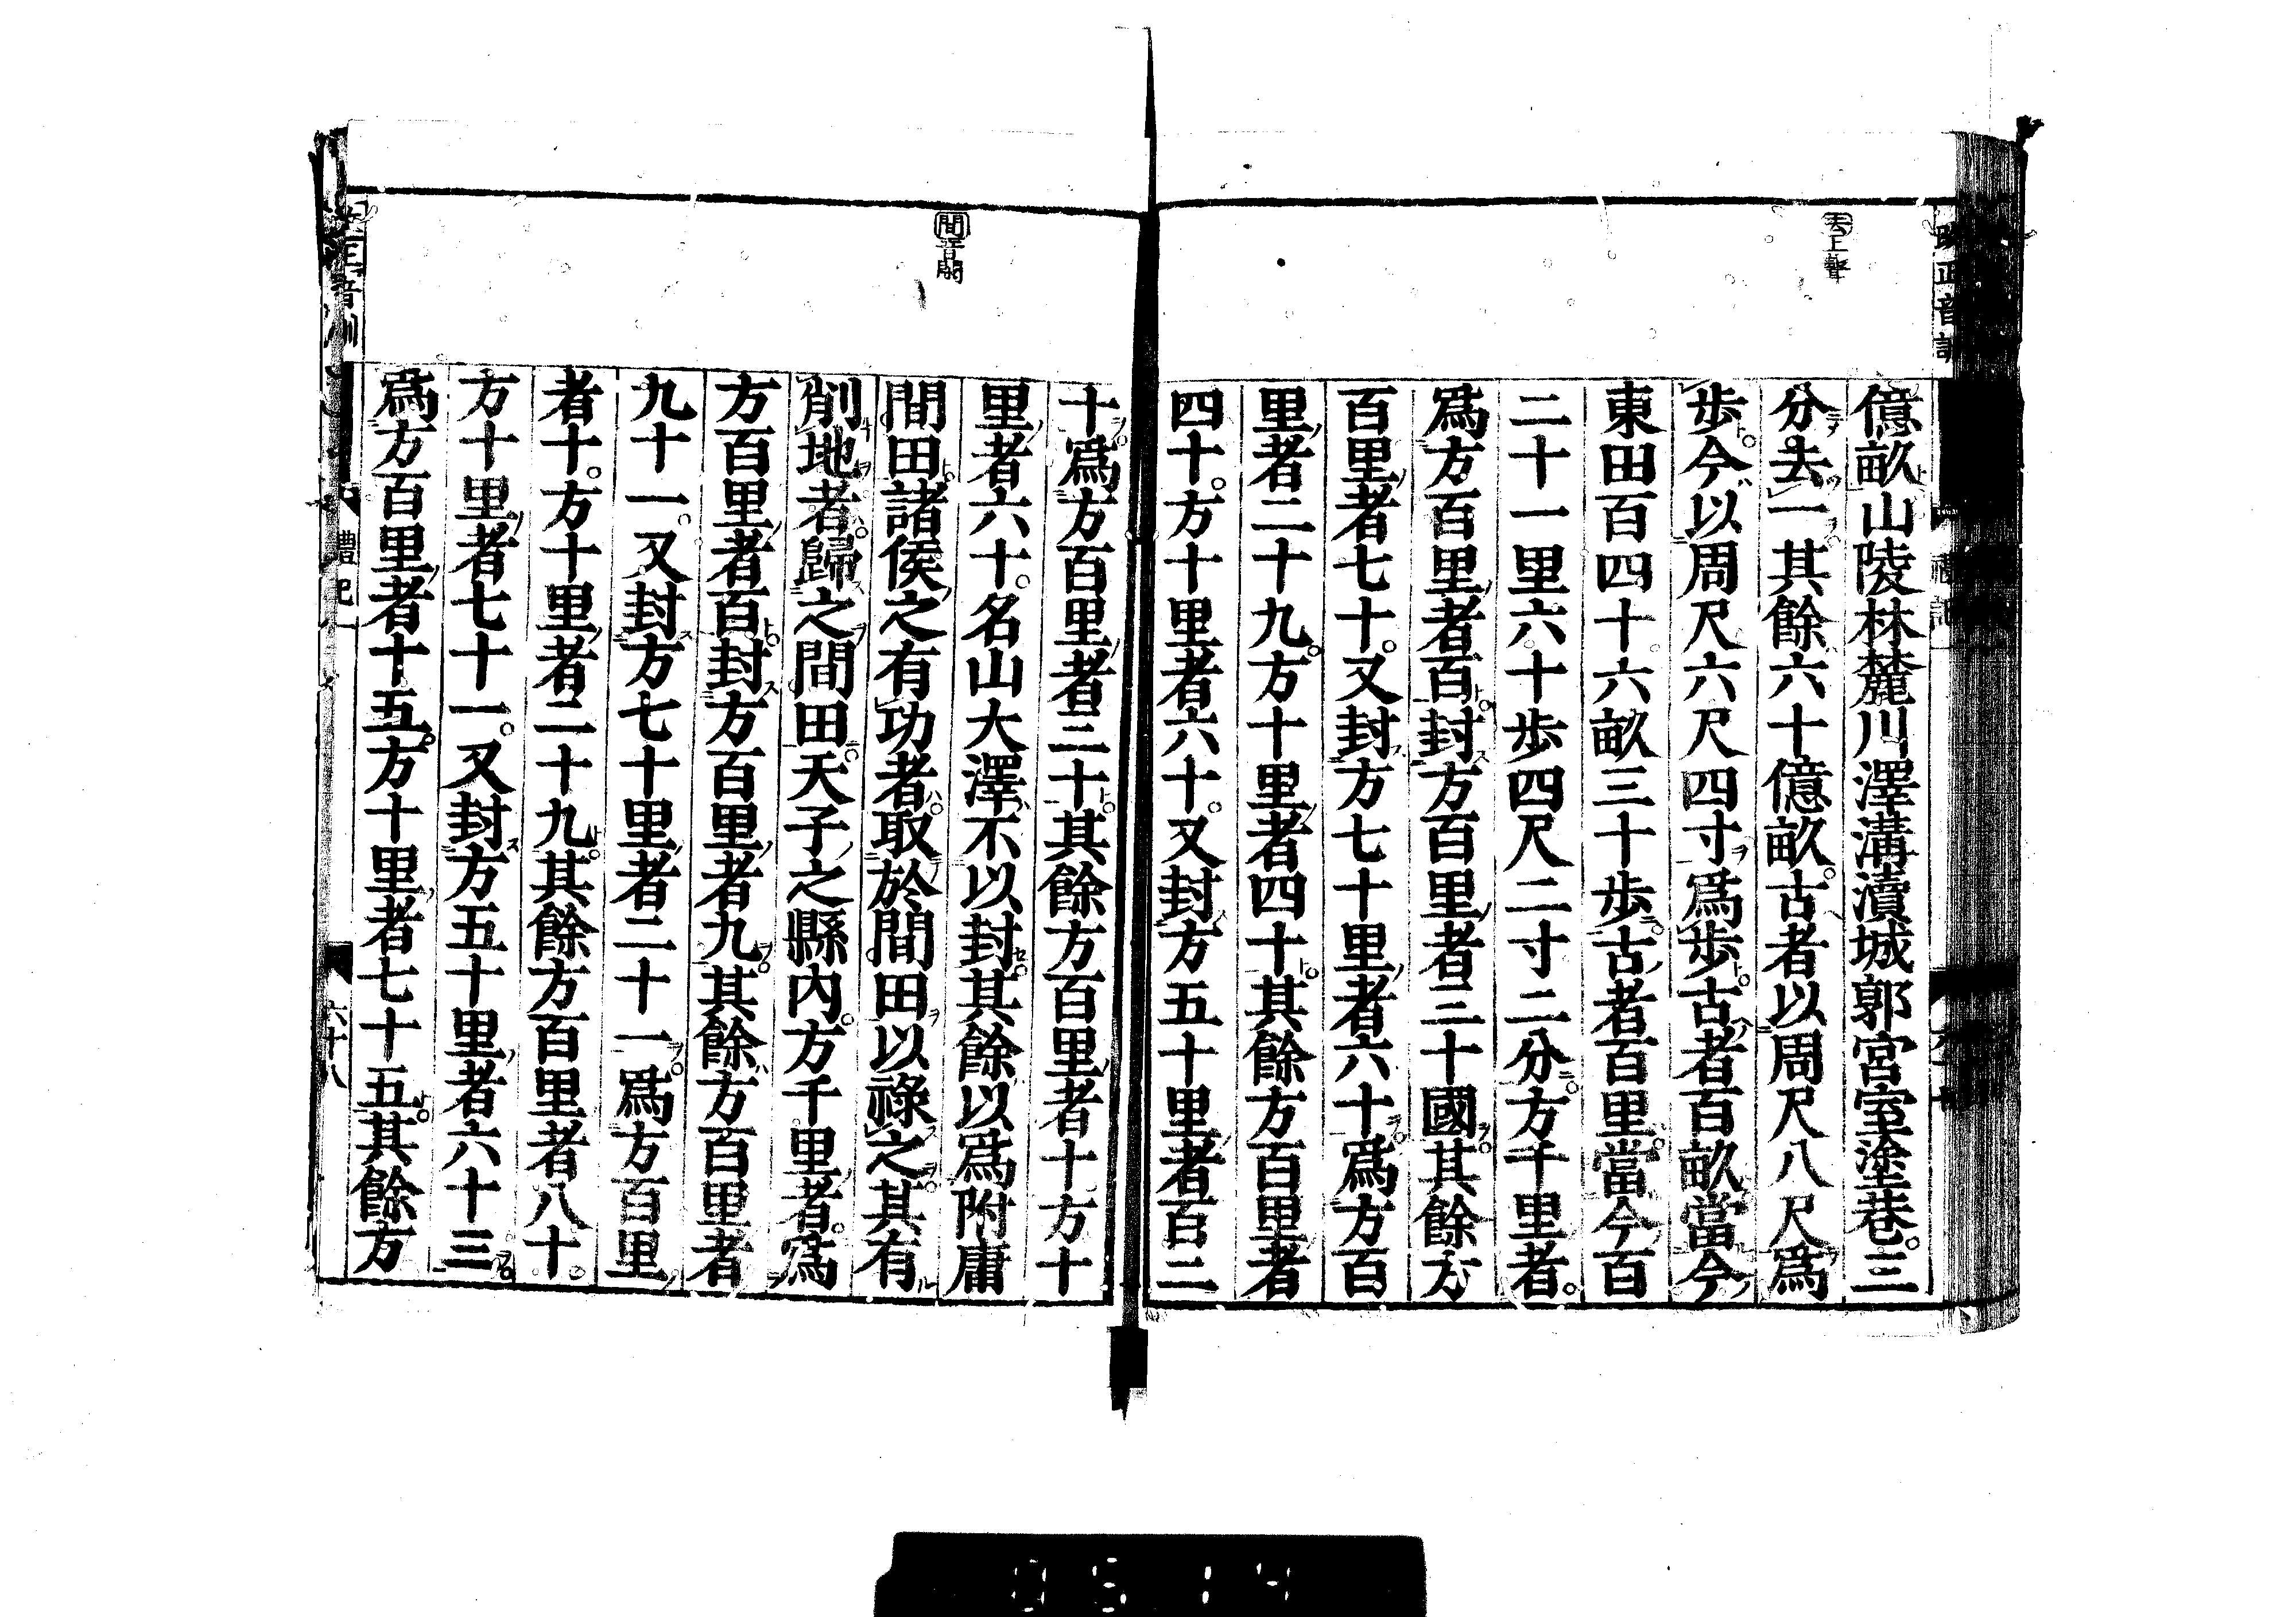 去上聲
億畝山陵林麓川澤溝瀆城郭宮室塗巷。三
分去一其餘六十億畝。古者以周尺八尺爲
歩。今以周尺六尺四寸爲歩。古者百畝當今
東田百四十六畝三十歩。古者百里當今百
二十一里六十歩四尺二寸二分。方千里者。
爲方百里者百。封方百里者三十國。其餘方
百里者七十。又封方七十里者六十。爲方百
里者二十九。方十里者四十。其餘方百里者
四十。方十里者六十。又封方五十里者百二
間音閑
十。爲方百里者三十。其餘方百里者十方十
里者六十。名山大澤不以封。其餘以爲附庸
間田。諸侯之有功者。取於間田以祿之。其有
削地者。歸之間田。天子之縣内。方千里者。爲
方百里者百。封方百里者九。其餘方百里者
九十一。又封方七十里者二十一。爲方百里
者十。方十里者二十九。其餘方百里者八十。
方十里者七十一。又封方五十里者六十三。
爲方百里者十五。方十里者七十五。其餘方
正音訓
禮記一
六十八
0514